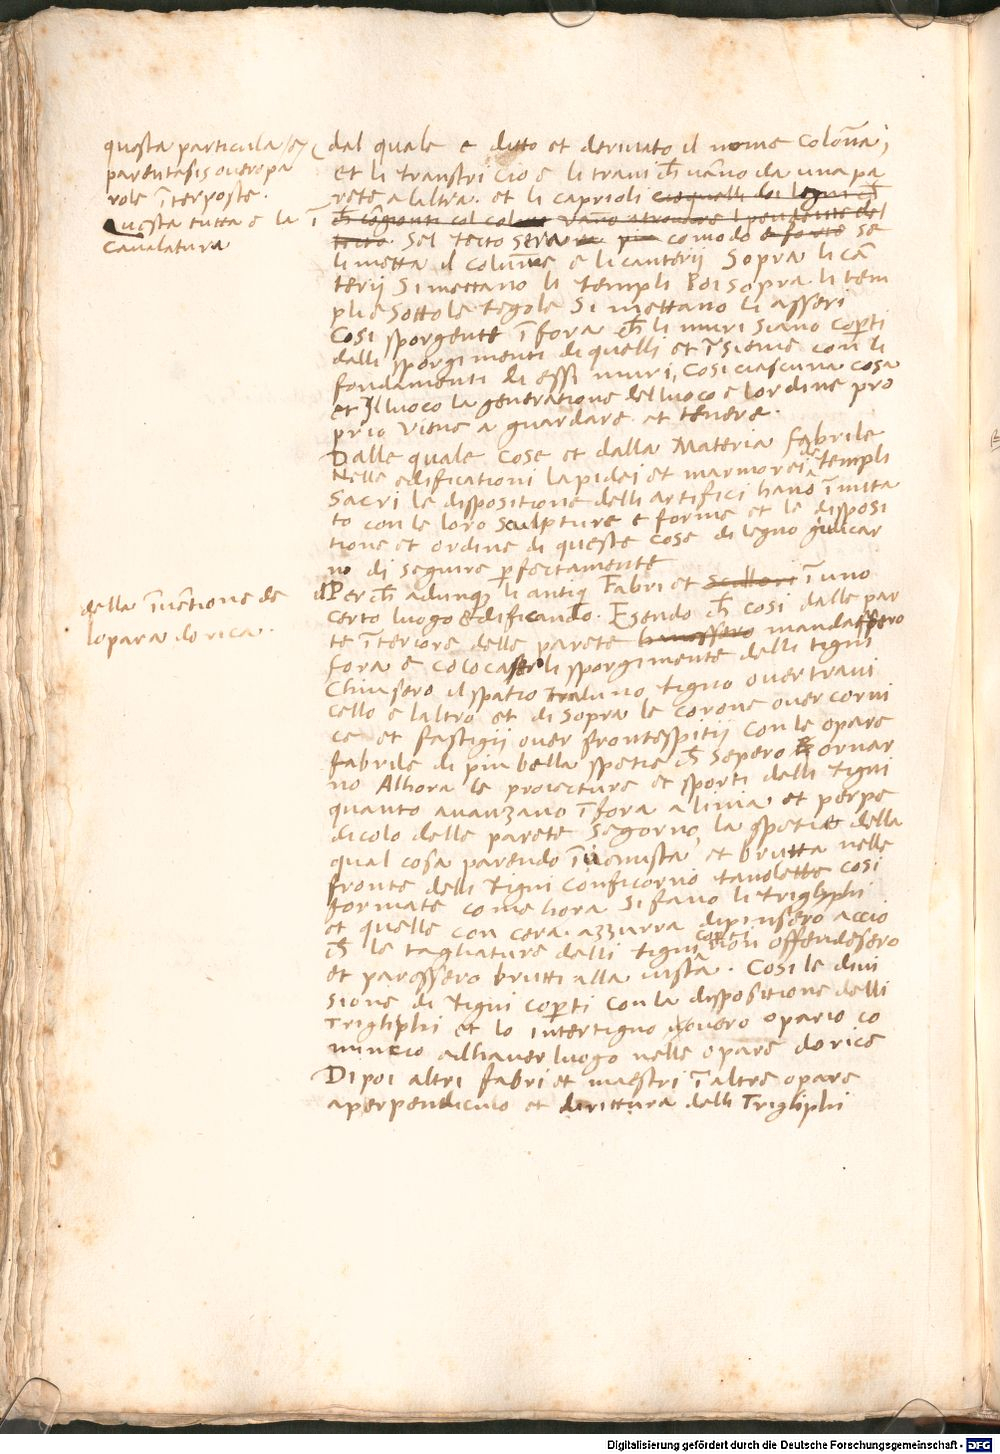 questa particula e
parentasis overo pa
role īterposte.
Questa tutta e la
Cavalatura
dal quale e ditto et derivato il nome Colōna;
et li transtri cioe li travi ch̄ vāno da una pa
rete alaltra. et li caprioli cioe quelli doi legni ch̄
Sel tecto sera comodo e forte se
li metta il columne e li canterii Sopra li cā
terii Si mettano li templi Poi sopra li tem
pli e sotto le tegole Si mettano li asseri
Cosi sporgente ī fora ch̄ li muri siano coꝑti
dalli sporgimenti di quelli et īsieme con li
fondamenti di essi muri, Cosi ciascuna cosa
et Il luoco la generatione del luoco e lordine pro
prio viene a guardare et tenere.
Dalle quale Cose et dalla Materia fabrile
Nelle edificationi lapidei et marmorei de templi
Sacri le dispositione delli artifici hano īmita
to con le loro sculpture e forme et le disposi
tione et ordine di queste cose di legno giudicar
no di seguire ꝑfectamente
della īvētione de
lopara dorica.
Per ch̄ adunqꝫ li antiq Fabri et Scultori ī uno
Certo luogo edificando. Esendo ch̄ cosi dalle par
te īteriore delle parete havessero mandassero
fora e colocasero li sporgimente delli tigni
Chiusero il spatio tra luno tigno over travi
cello e laltro et di sopra le corone over corni
ce et fastigii over frontespitii Con le opare
fabrile di piu bella spetie ch̄ sepero ornar
no Alhora le proiecture et sporti delli tigni
quanto avanzano ī fora a linia et perpe
dicolo delle parete Segorno, la spetie della
qual cosa parendo īvenusta et brutta nelle
fronte delli tigni conficorno tavolette cosi
formate come hora si fano li triglyphi
et quelle con cera azzurra dipinsero accio
ch̄ le tagliature delli tigni coꝑti non offendesero
et paressero brutti alla vista. Cosi le divi
sione di tigni coꝑti con la dispositione delli
Trigliphi et lo intertigno overo opario co
mincio adhaver luogo nelle opare dorice
Di poi altri fabri et maestri ī altre opare
a perpendiculo et dirittura delli Trigliphi
Digitalisierung gefördert durch die Deutsche Forschungsgemeinschaft - DFG